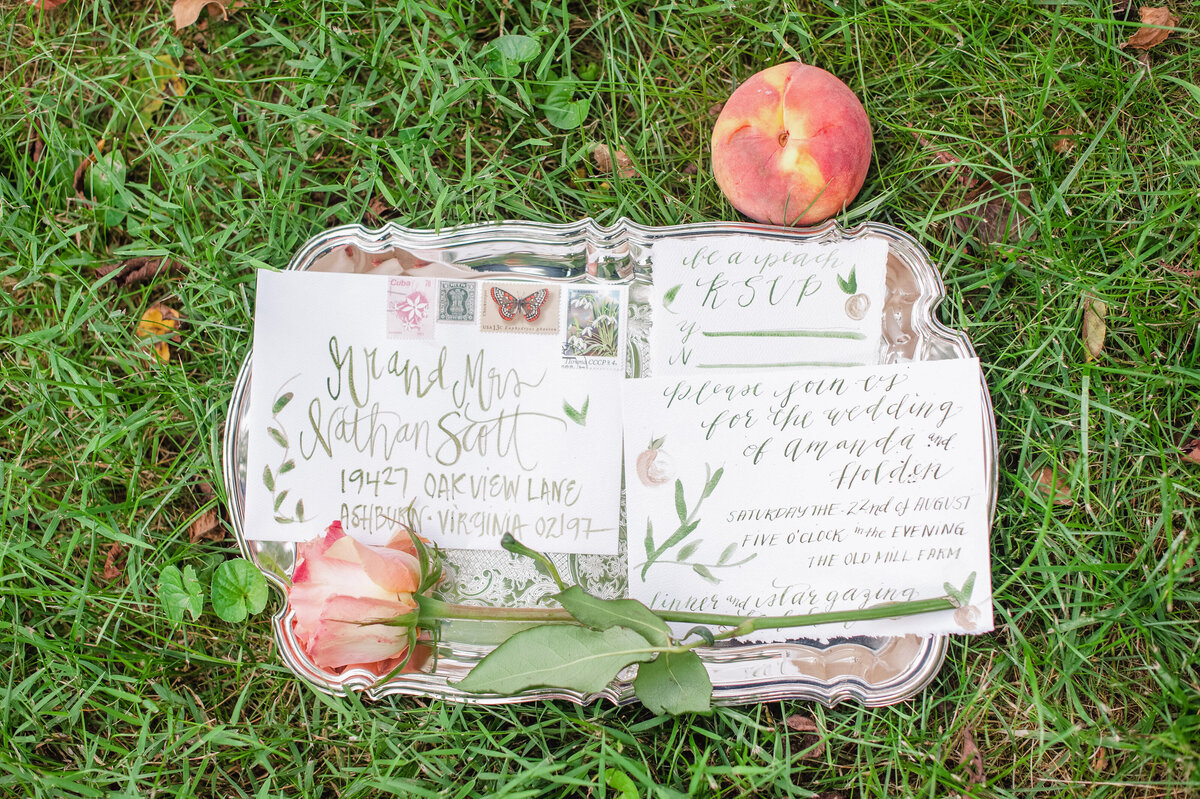 Cuba
USA 13c
Mr and Mrs
Nathan Scott
19427 OAKVIEW LANE
ASHBURN · VIRGINIA 02197
be a peach
RSVP
Y
N
Please join us
for the wedding
of Amanda and
Holden
SATURDAY THE 22nd of AUGUST
FIVE O'CLOCK in the EVENING
THE OLD MILL FARM
dinner and stargazing